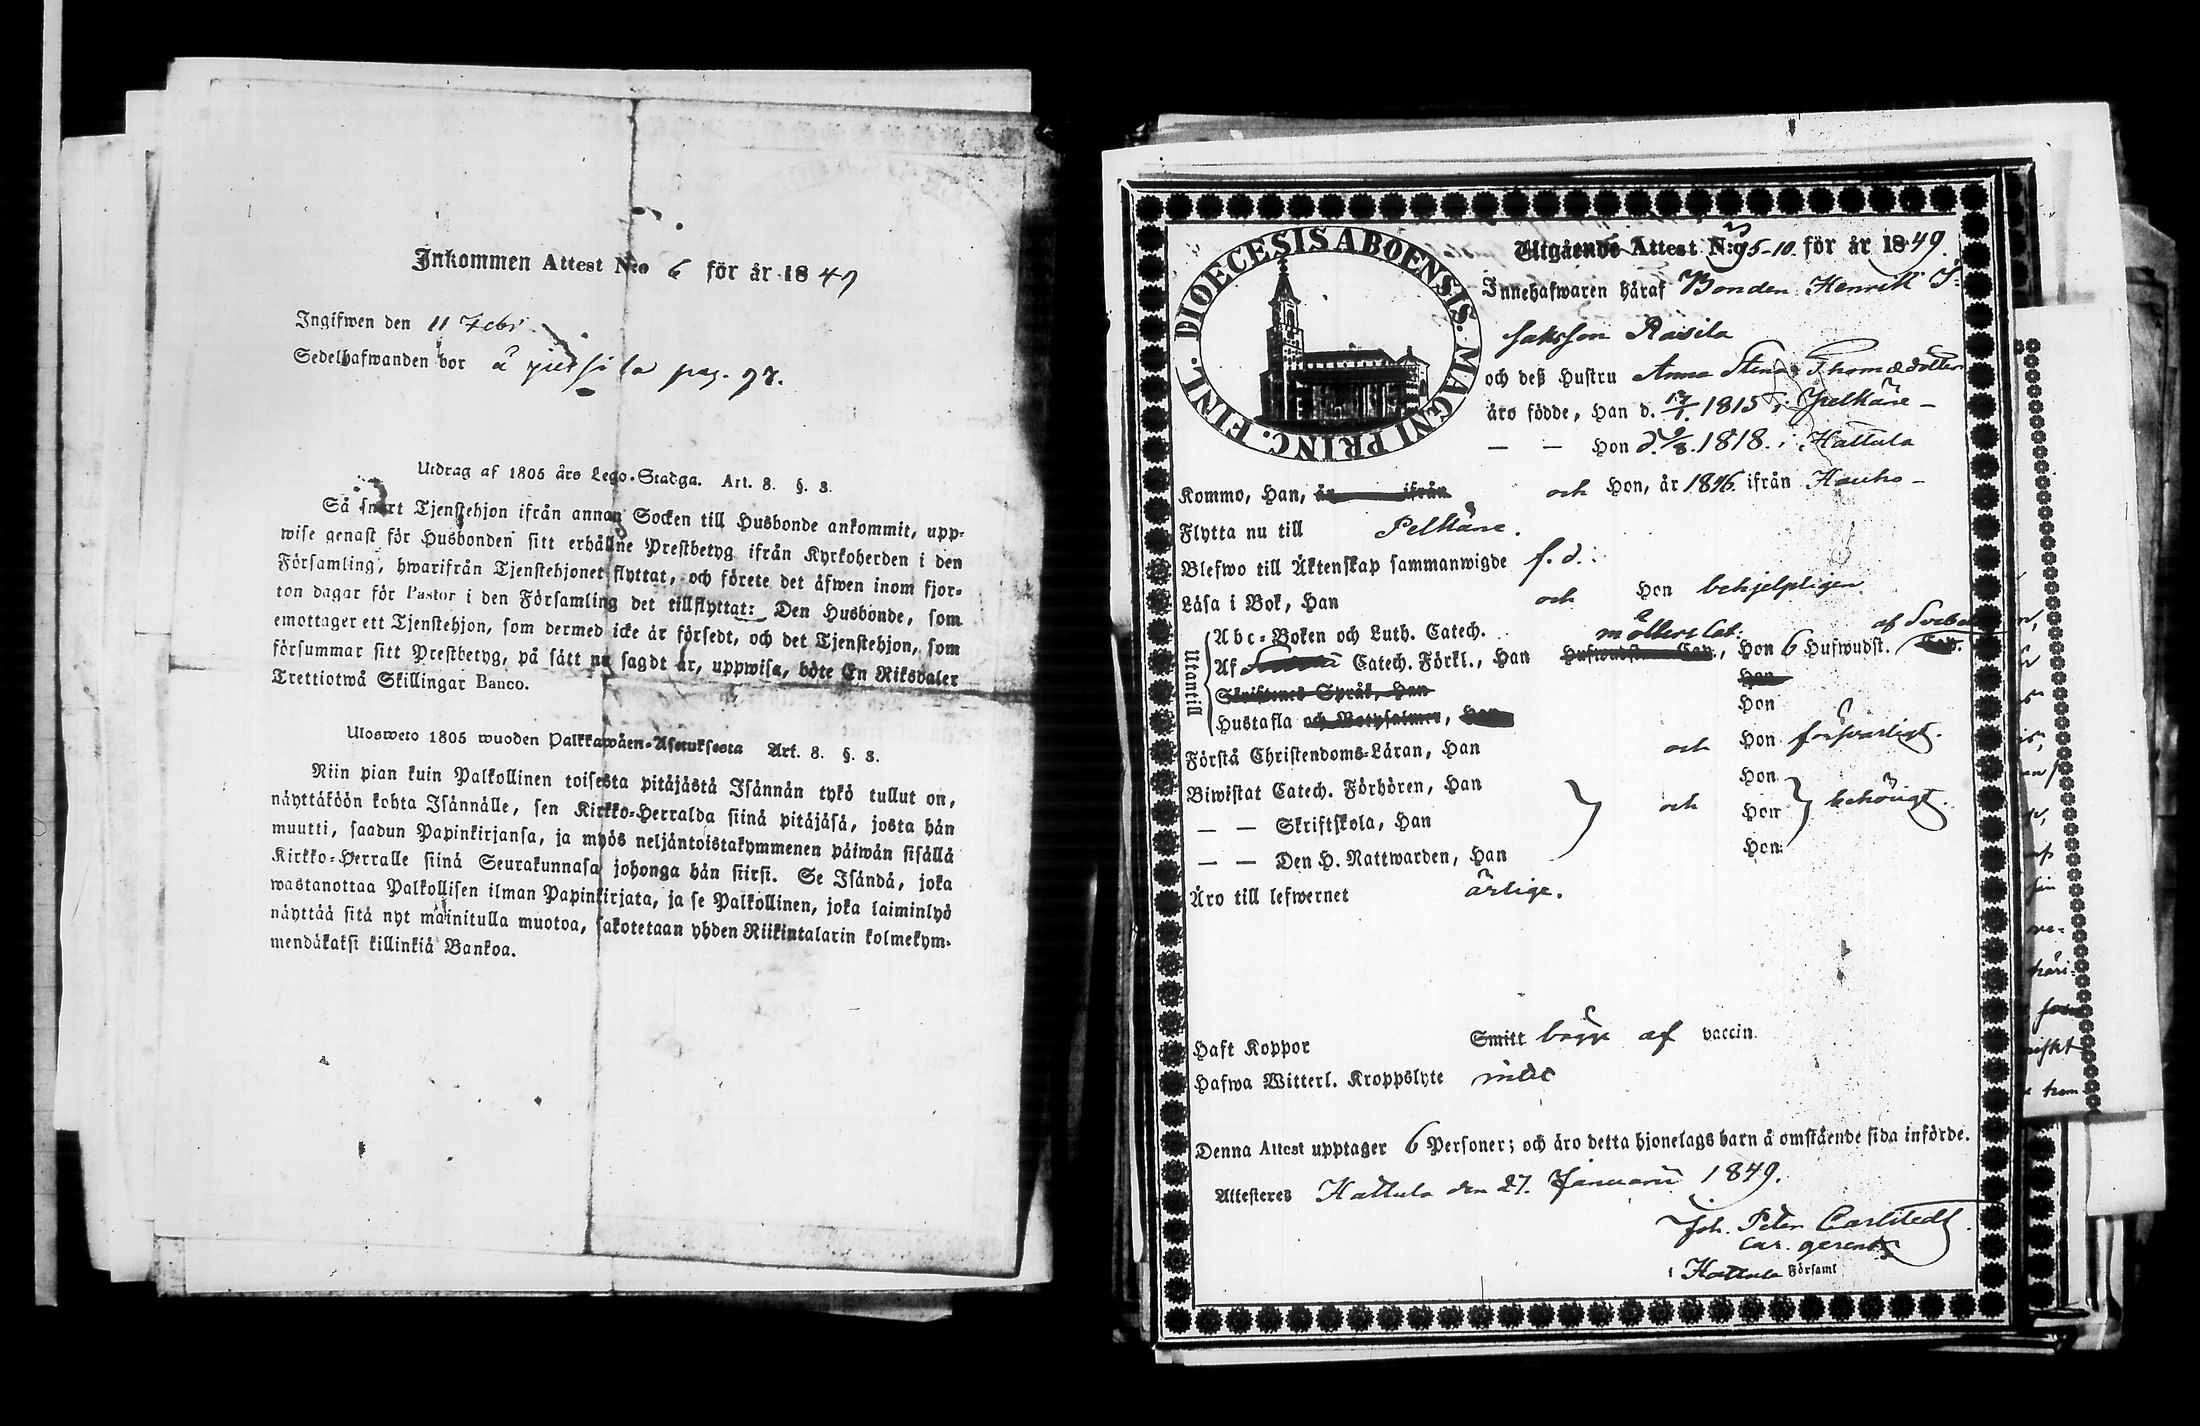 Inkommen Attest N:o 6 för år 1849
Ingifwen den 11 Febr.
Sedelhafwanden bor å pag. 97.
Utdrag af 1805 års Lego-Stadga. Art. 8. §. 3.
Så snart Tjenstehjon ifrån annan Socken till Husbonde ankommit, upp-
wise genast för Husbonden sitt erhållne Prestbetyg ifrån Kyrkoherden i den
Församling, hwarifrån Tjenstehjonet flyttat, och förete det äfwen inom fjor-
ton dagar för Pastor i den Församling det tillflyttat: Den Husbonde, som
emottager ett Tjenstehjon, som dermed icke är försedt, och det Tjenstehjon, som
försummar sitt Prestbetyg, på sätt nu sagdt är, uppwisa, böte En Riksdaler
Trettiotwå Skillingar Banco.
Ulosweto 1805 wuoden Palkkawäen-Asetuksesta Art. 8. §. 3.
Niin pian kuin Palkollinen toisesta pitäjästä Isännän tykö tullut on,
näyttäköön kohta Isännälle, sen Kirkko-Herralda siinä pitäjäsä, josta hän
muutti, saadun Papinkirjansa, ja myös neljäntoistakymmenen päiwän sisällä
Kirkko-Herralle siinä Seurakunnasa johonga hän siirsi. Se Isändä, joka
wastanottaa Palkollisen ilman Papinkirjata, ja se Palkollinen, joka laiminlyö
näyttää sitä nyt mainitulla muotoa, sakotetaan yhden Riikintalarin kolmekym-
mendäkaksi killinkiä Bankoa.
DIOECESIS ABOENSIS. MAGNI PRINC. FINL.
Utgående Attest N:o 5-10. för år 1849.
Innehafwaren häraf Bonden Henrik I-
saksson Rasila
och deß Hustru Anna Stina Thomædotter
äro födde, Han d. 1815 i Pelkäne -
— — Hon d. 1818. i Hattula
Kommo, Han, år ifrån och Hon, år 1846 ifrån Hauho -
Flytta nu till Pelkäne.
Blefwo till Äktenskap sammanwigde f. d.:
Läsa i Bok, Han och Hon behjelpligen
Utantill
Abc-Boken och Luth. Catech. af Sveb
Af Catech. Förkl., Han Hufwudst. Cap., Hon 6 Hufwudst. Cap.
Skriftenes Språk, Han Hon
Hustafla och Botpsalmer, Han Hon
Förstå Christendoms-Läran, Han och Hon försvarligt.
Biwistat Catech. Förhören, Han Hon
— — Skriftskola, Han och Hon behörigt.
— — Den H. Nattwarden, Han Hon
Äro till lefwernet ärlige.
Haft Koppor Smitt af vaccin
Hafwa Witterl. Kroppslyte intet
Denna Attest upptager 6 Personer; och äro detta hjonelags barn å omstående sida införde.
Attesteres Hattula den 27. Januarii 1849.
Joh. Peter Carlstedt.
i Hattula Församl